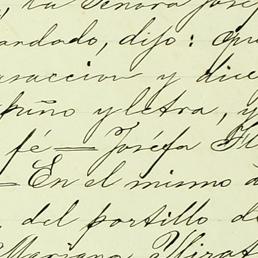 la Señora José
andado, dijo: que
asaccion y dice
puño y letra, y
fé = Josefa Fl
= En el mismo d
, del portillo de
Mariano Mirat